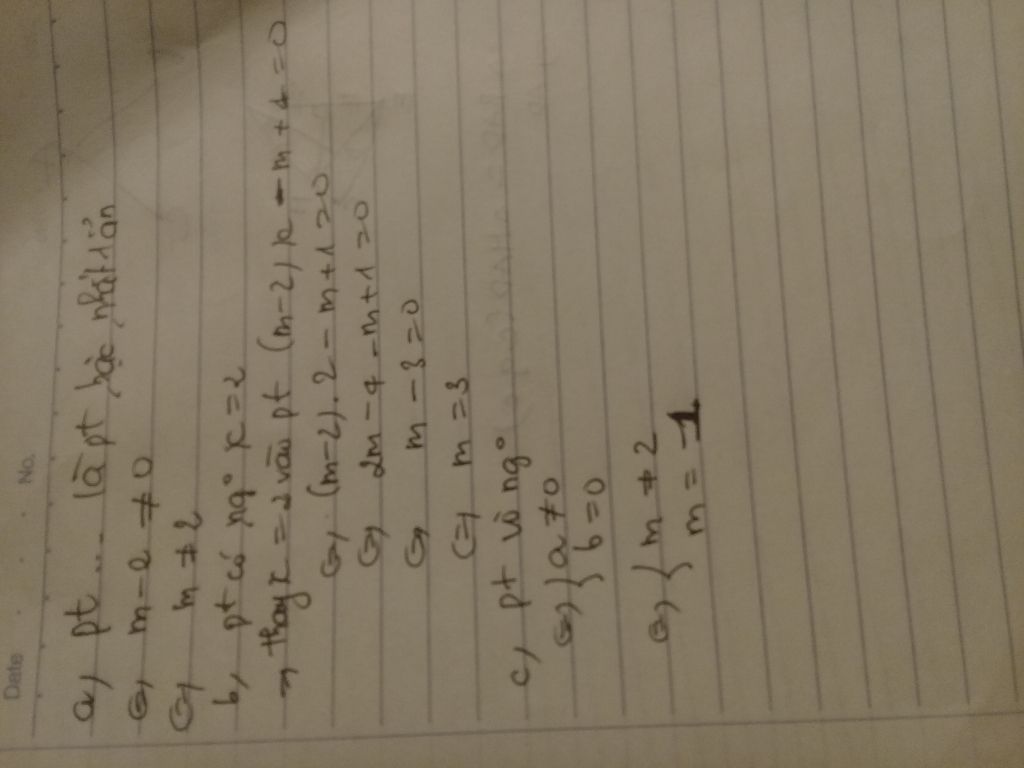 Date No.
a, pt .... là pt bậc nhất 1 ẩn
⇔, m - 2 ≠ 0
⇔, m ≠ 2
b, pt có ng° x = 2
⇒, thay x = 2 vào pt (m-2) x - m + 1 = 0
⇔, (m-2). 2 - m + 1 = 0
⇔, 2m - 4 - m + 1 = 0
⇔, m - 3 = 0
⇔, m = 3
c, pt vô ng°
⇔, { a ≠ 0
b = 0
⇔, { m ≠ 2
m = 1